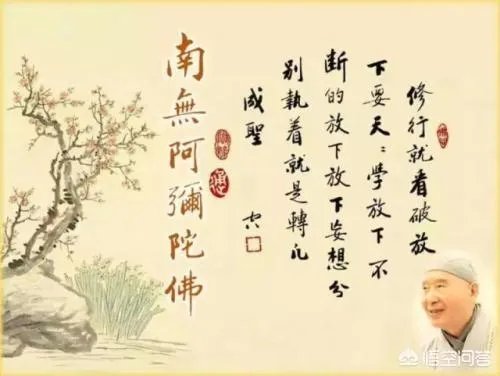 修行就看破放
下要天:學放下不
断的放下放下妄想分
别執着就是轉凡
成聖
南無阿彌陀佛
悟空问答